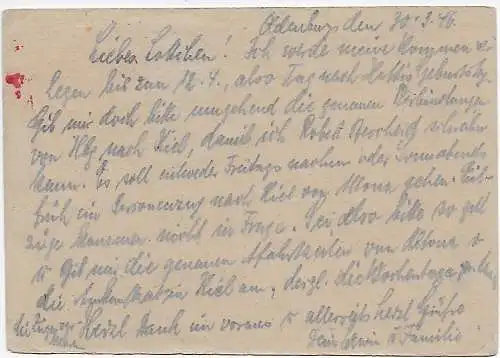 Oldenburg, den 30.3.46.
Liebes Lottchen! Ich werde meine Kommen ver
legen bis zum 12.4., also Tag nach Geburtstg.
Gib mir doch bitte umgehend die genauen Verbindungen
von Hbg nach Kiel, damit ich Robert schreiben
kann. Es soll entweder Freitags nachm oder Sonnabends
früh ein Personenzug nach Kiel von Altona gehen. Eil-
züge kommen nicht in Frage. Sei also bitte so gut
u gib mir die genauen Abfahrtzeiten von Altona u
die Ankunft in Kiel an, dergl. die Wochentage
Herzl Dank im voraus u allerseits herzl Grüße
Dein Erwin u Familie